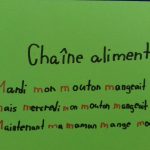 Chaîne aliment
Mardi mon mouton mangeait
mais mercredi mon mouton mangeait
Maintenant ma maman mange mo